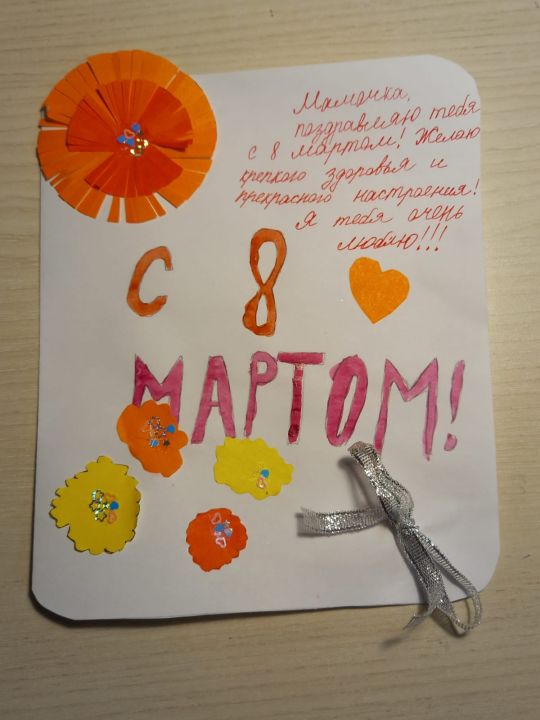 Мамочка,
поздравляю тебя
с 8 мартом! Желаю
крепкого здоровья и
прекрасного настроения!
Я тебя очень
люблю!!!
С 8
МАРТОМ!